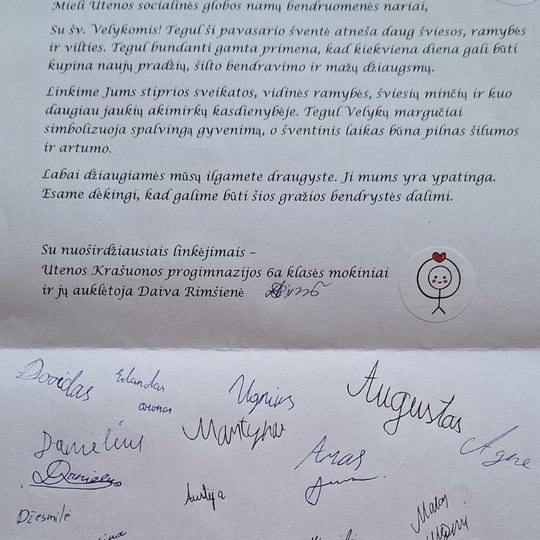 Mieli Utenos socialinės globos namų bendruomenės nariai,
Su šv. Velykomis! Tegul ši pavasario šventė atneša daug šviesos, ramybės
ir vilties. Tegul bundanti gamta primena, kad kiekviena diena gali būti
kupina naujų pradžių, šilto bendravimo ir mažų džiaugsmų.
Linkime Jums stiprios sveikatos, vidinės ramybės, šviesių minčių ir kuo
daugiau jaukių akimirkų kasdienybėje. Tegul Velykų margučiai
simbolizuoja spalvingą gyvenimą, o šventinis laikas būna pilnas šilumos
ir artumo.
Labai džiaugiamės mūsų ilgamete draugyste. Ji mums yra ypatinga.
Esame dėkingi, kad galime būti šios gražios bendrystės dalimi.
Su nuoširdžiausiais linkėjimais –
Utenos Krašuonos progimnazijos 6a klasės mokiniai
ir jų auklėtoja Daiva Rimšienė
Dovidas
Ugnius
Augustas
Danielius
Martyna
Aras
Agne
Danielius
Džesmilė
Matas